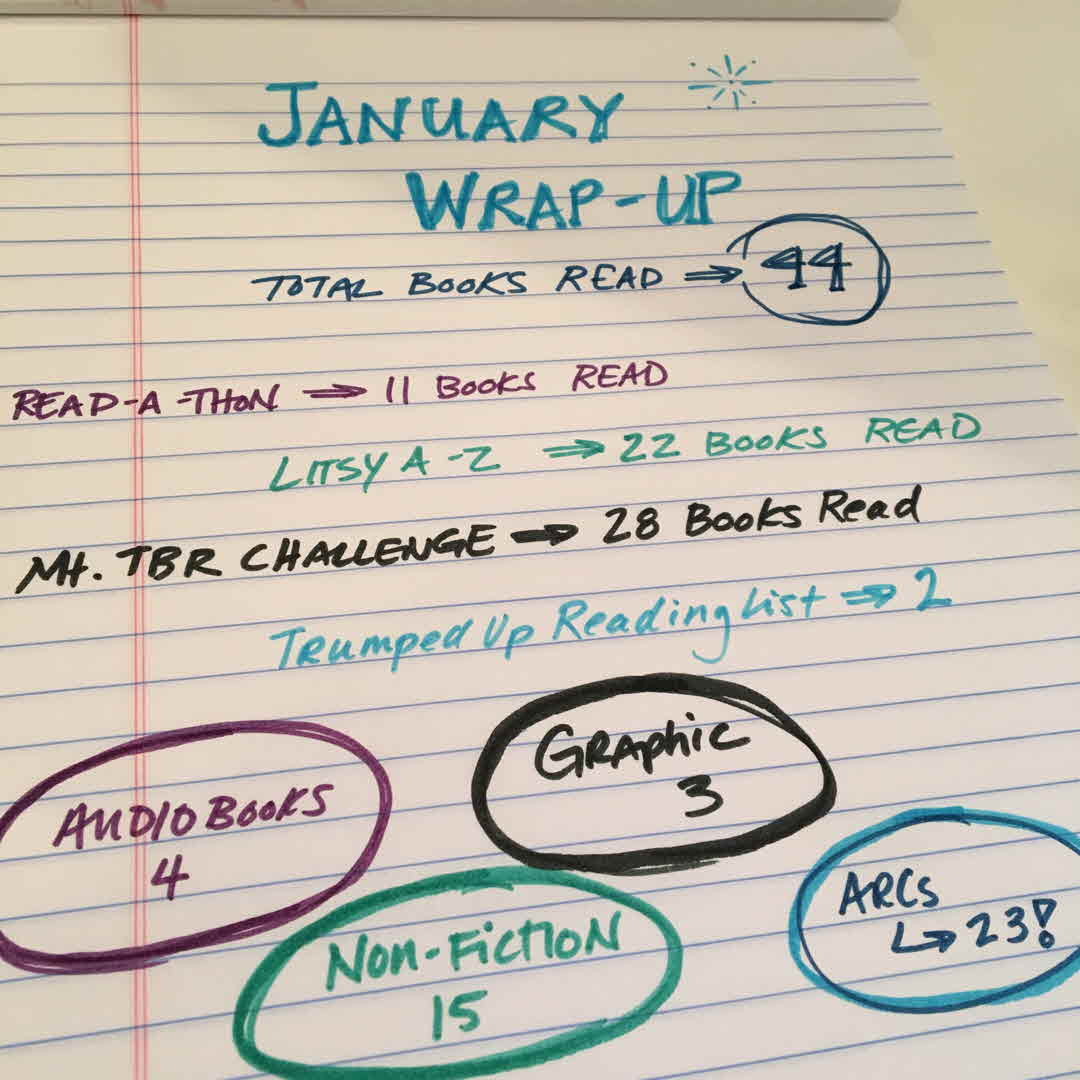 JANUARY
WRAP-UP
TOTAL BOOKS READ ⇒ 44
READ-A-THON ⇒ 11 BOOKS READ
LITSY A-Z ⇒ 22 BOOKS READ
Mt. TBR CHALLENGE ⇒ 28 Books Read
Trumped Up Reading List ⇒ 2
GRAphic
3
AUDIOBOOKS
4
ARCs
↳ 23!
NON-FICTION
15